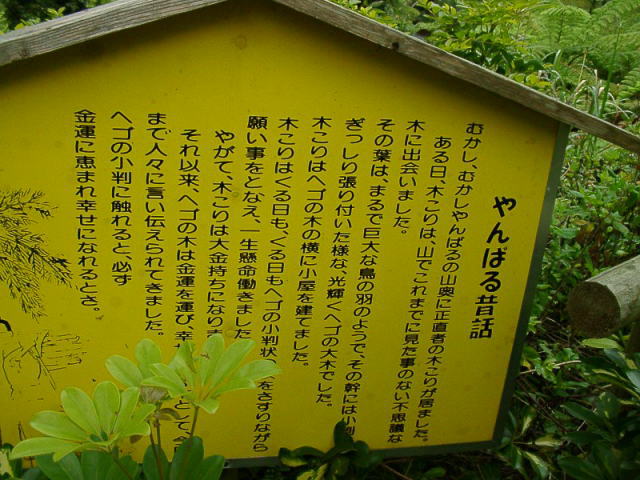 やんばる昔話
むかし、むかしやんばるの山奥に正直者の木こりが居ました。
ある日、木こりは、山でこれまでに見た事のない不思議な
木に出会いました。
その葉は、まるで巨大な鳥の羽のようで、その幹には小判
ぎっしり張り付いた様な、光輝くヘゴの大木でした。
木こりはヘゴの木の横に小屋を建てました。
木こりはくる日も、くる日もヘゴの小判状
をさすりながら
願い事をとなえ、一生懸命働きました
やがて、木こりは大金持ちになり
それ以来、ヘゴの木は金運を運び、幸
として、今
まで人々に言い伝えられてきました。
ヘゴの小判に触れると、必ず
金運に恵まれ幸せになれるとさ。